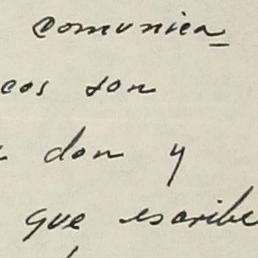 comunica
cos son
don y
que escribe